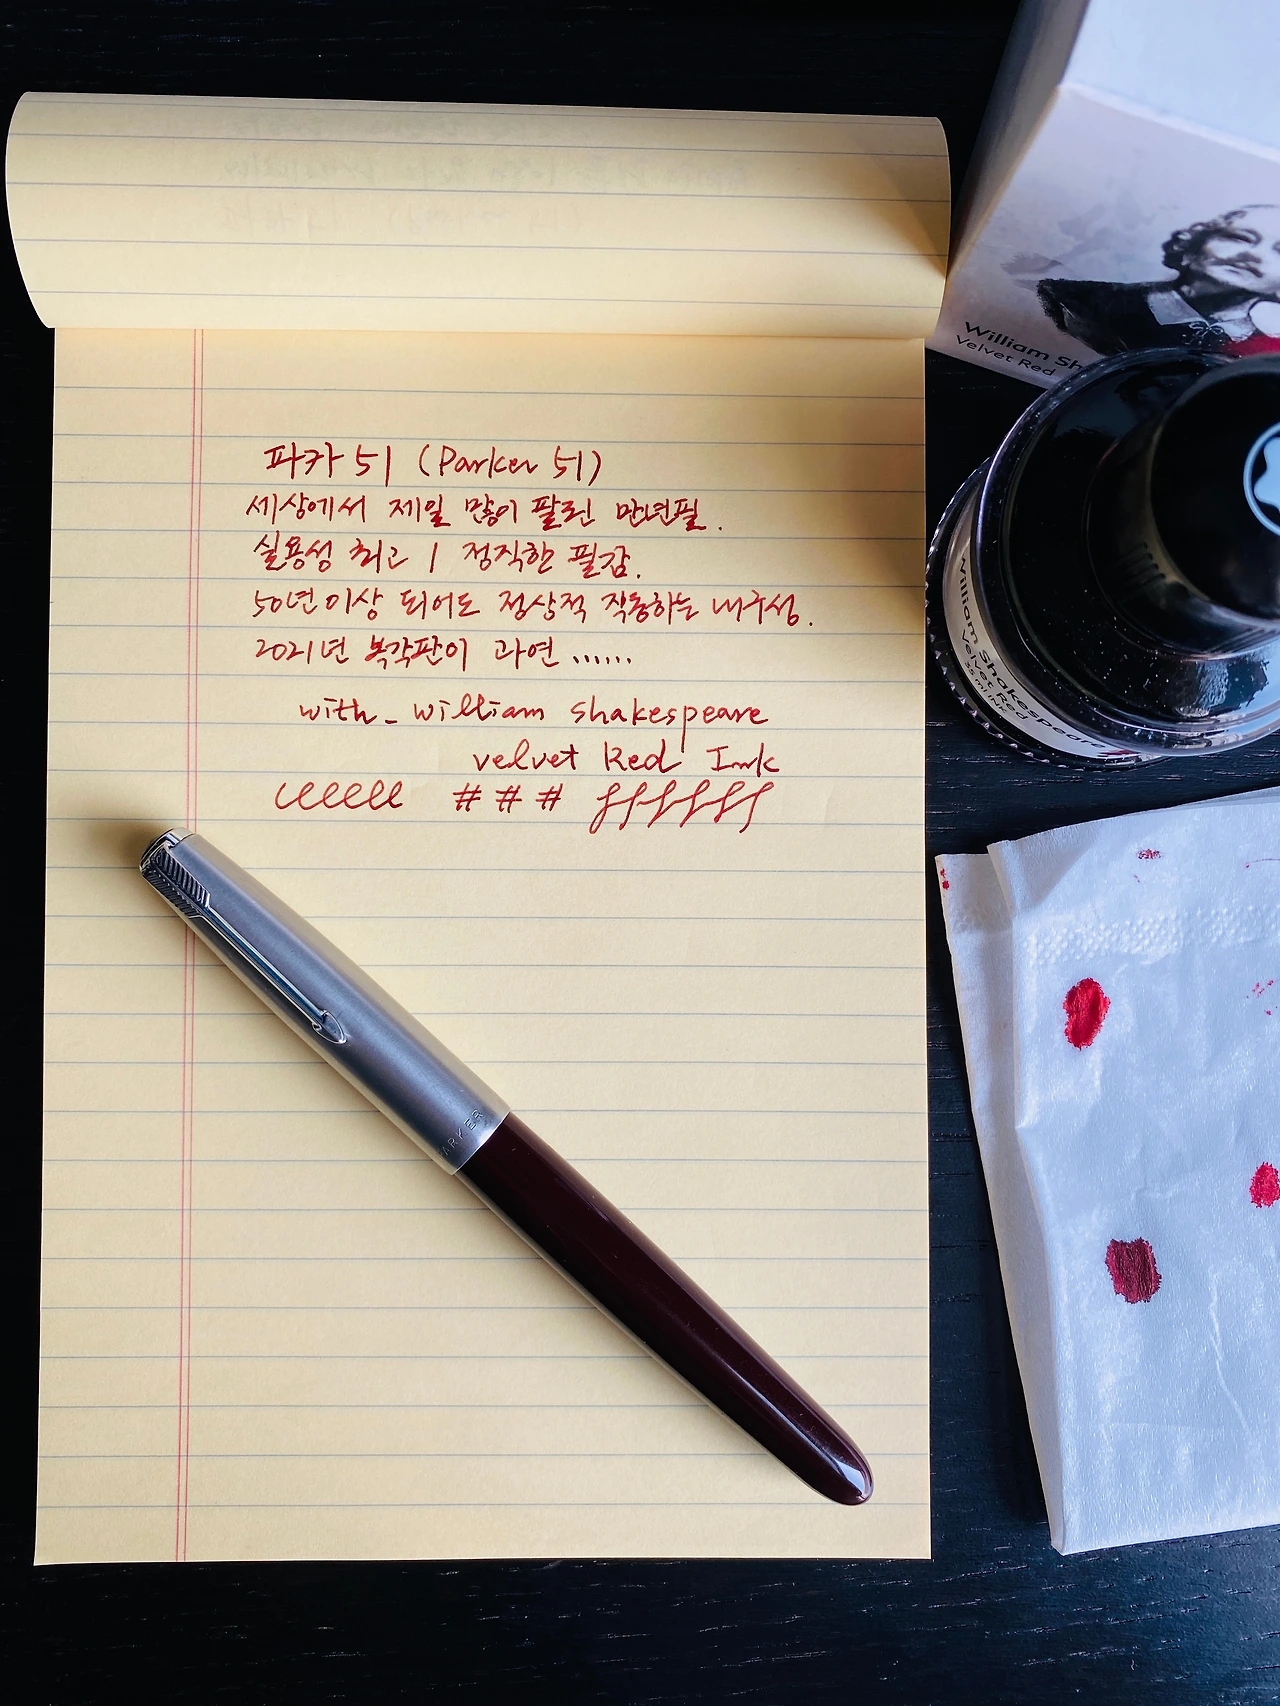 파카 51 (Parker 51)
세상에서 제일 많이 팔린 만년필.
실용성 최고 / 정직한 필감.
50년이상 되어도 정상적 작동하는 내구성.
2021년 복각판이 과연 ......
with_ william shakespeare
velvet Red Ink
eeeeee # # # ffffff
ARKER
William Sh
Velvet Red
William Shakespeare
Velvet Red
35 ml INK